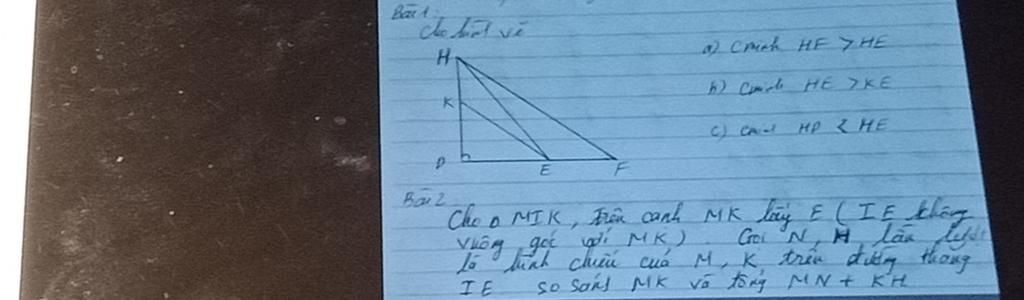 Bài 1
Cho hình vẽ
a) Cminh HF > HE
H
b) Cminh HE > KE
K
c) Cminh HD < HE
D
E F
Bài 2
Cho Δ MIK, trên cạnh MK lấy E (IE không
vuông góc với MK). Gọi N, H lần lượt
là hình chiếu của M, K trên đường thẳng
IE so sánh MK và tổng MN + KH